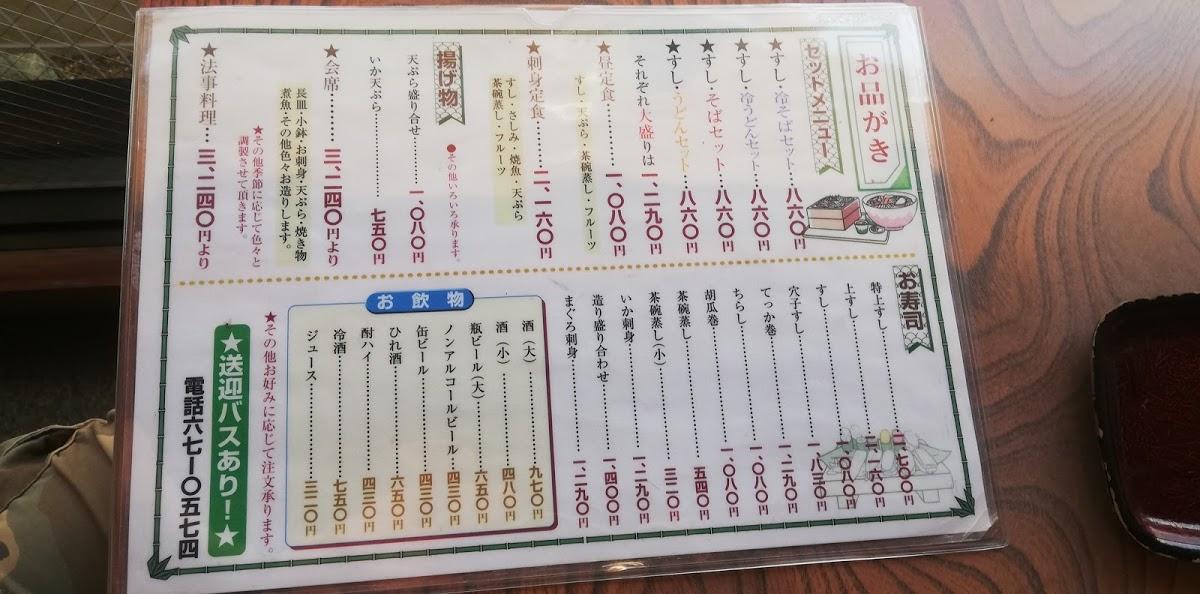 お品がき
セットメニュー
★すし・冷そばセット…八六〇円
★すし・冷うどんセット…八六〇円
★すし・そばセット…八六〇円
★すし・うどんセット…八六〇円
それぞれ大盛りは…一、二九〇円
★昼定食…一、〇八〇円
すし・天ぷら・茶碗蒸し・フルーツ
★刺身定食…二、一六〇円
すし・さしみ・焼魚・天ぷら
茶碗蒸し・フルーツ
揚げ物
●その他いろいろ承ります。
天ぷら盛り合せ…一、〇八〇円
いか天ぷら…七五〇円
★会席…三、二四〇円より
長皿・小鉢・お刺身・天ぷら・焼き物
煮魚・その他色々お造りします。
★その他季節に応じて色々と
調製させて頂きます。
★法事料理…三、二四〇円より
お寿司
特上すし…二、七〇〇円
上すし…二、一六〇円
すし…一、〇八〇円
穴子すし…一、八三〇円
てっか巻…一、二九〇円
ちらし…一、〇八〇円
胡瓜巻…五四〇円
茶碗蒸し…五四〇円
茶碗蒸し(小)…三二〇円
いか刺身…一、二九〇円
造り盛り合わせ…一、四〇〇円
まぐろ刺身…一、二九〇円
お飲物
酒(大)…九七〇円
酒(小)…四八〇円
瓶ビール(大)…六五〇円
ノンアルコールビール…四三〇円
缶ビール…四三〇円
ひれ酒…六五〇円
酎ハイ…四三〇円
冷酒…七五〇円
ジュース…三二〇円
★その他お好みに応じて注文承ります。
★送迎バスあり！★
電話六七ー〇五七四